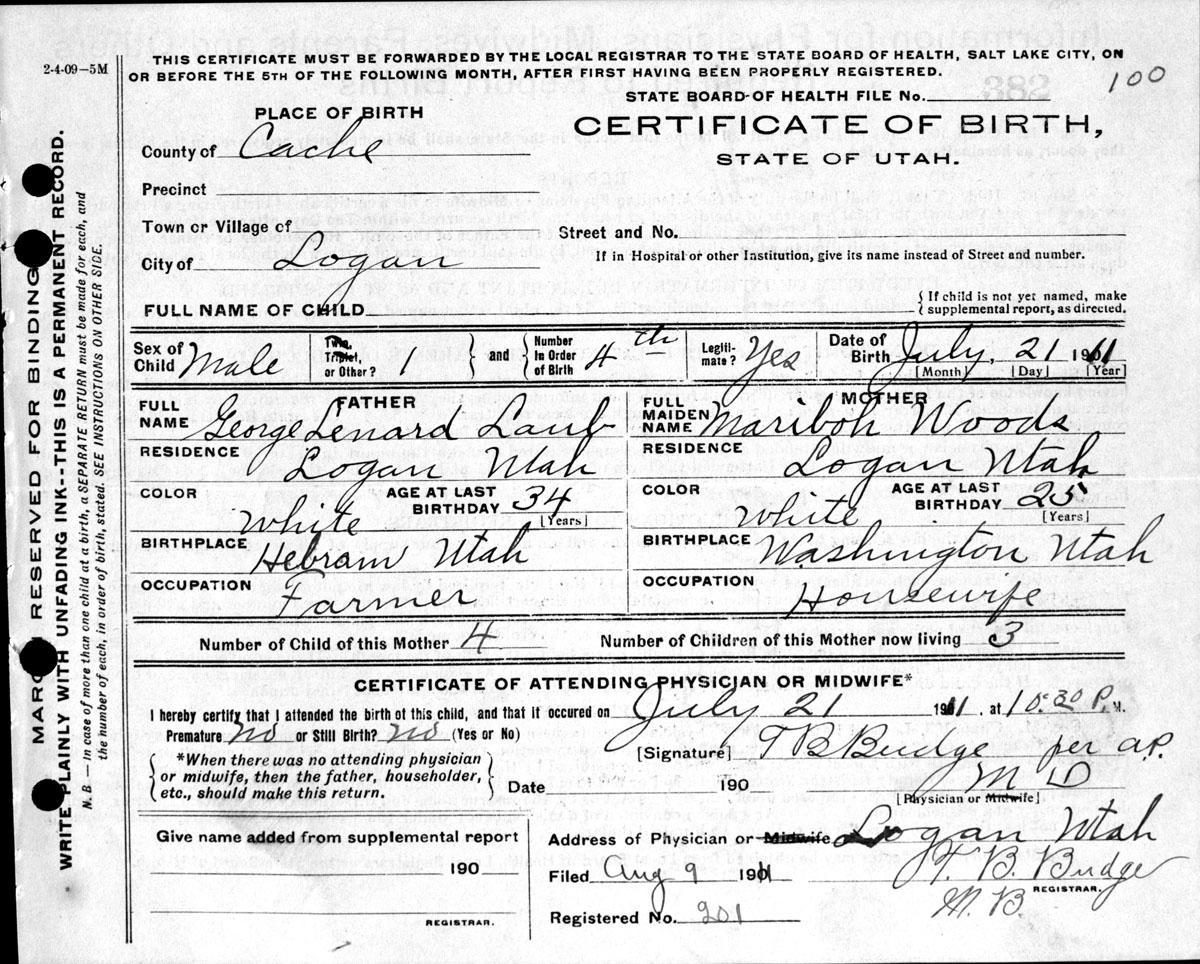 2-4-09—5M
THIS CERTIFICATE MUST BE FORWARDED BY THE LOCAL REGISTRAR TO THE STATE BOARD OF HEALTH, SALT LAKE CITY, ON
OR BEFORE THE 5TH OF THE FOLLOWING MONTH, AFTER FIRST HAVING BEEN PROPERLY REGISTERED.
100
STATE BOARD OF HEALTH FILE No.
PLACE OF BIRTH
CERTIFICATE OF BIRTH,
STATE OF UTAH.
County of Cache
Precinct
Town or Village of
Street and No.
City of Logan
If in Hospital or other Institution, give its name instead of Street and number.
FULL NAME OF CHILD
{ If child is not yet named, make
supplemental report, as directed.
Sex of Child Male
Twin, Triplet, or Other? 1 } and { Number in Order of Birth 4th
Legiti-mate? Yes
Date of Birth July 21 1911
[Month] [Day] [Year]
FATHER
FULL NAME George Lenard Laub
MOTHER
FULL MAIDEN NAME Mariboh Woods
RESIDENCE Logan Utah
RESIDENCE Logan Utah
COLOR White
AGE AT LAST BIRTHDAY 34 [Years]
COLOR White
AGE AT LAST BIRTHDAY 25 [Years]
BIRTHPLACE Hebram Utah
BIRTHPLACE Washington Utah
OCCUPATION Farmer
OCCUPATION Housewife
Number of Child of this Mother 4
Number of Children of this Mother now living 3
CERTIFICATE OF ATTENDING PHYSICIAN OR MIDWIFE*
I hereby certify that I attended the birth of this child, and that it occured on July 21 1911, at 10:30 P. M.
Premature? no or Still Birth? no (Yes or No)
[Signature] T B Budge per a.P.
M D
[Physician or Midwife]
{ *When there was no attending physician
or midwife, then the father, householder,
etc., should make this return. }
Date 190
Give name added from supplemental report
190
REGISTRAR.
Address of Physician or Midwife Logan Utah
Filed Aug 9 1911
T. B. Budge
REGISTRAR.
M. B.
Registered No. 201
MARGIN RESERVED FOR BINDING
WRITE PLAINLY WITH UNFADING INK--THIS IS A PERMANENT RECORD.
N. B.—In case of more than one child at a birth, a SEPARATE RETURN must be made for each, and
the number of each, in order of birth, stated. SEE INSTRUCTIONS ON OTHER SIDE.